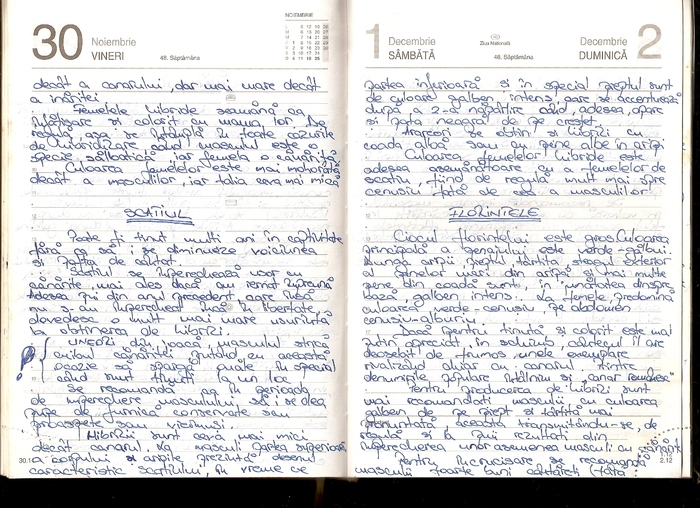 30 Noiembrie
VINERI
48. Săptămâna
NOIEMBRIE
decât a canarului, dar mai mare decât
a inăriței.
Femelele hibride seamănă ca
înfățișare și colorit cu mama lor. De
regulă așa se întâmplă în toate cazurile
de hibridizare când masculul este o
specie sălbatică, iar femela o cănăriță.
Culoarea femelelor este mai mohorâtă
decât a masculilor, iar talia ceva mai mică.
SCATIUL
Poate fi ținut mulți ani în captivitate
fără ca să i se diminueze vioiciunea
și pofta de cântat.
Scatiul se împerechează ușor cu
cănărițe, mai ales dacă au iernat împreună
Adesea pui din anul precedent, care încă
nu s-au împerecheat încă în libertate,
dovedesc a mult mai mare ușurință
la obținerea de hibrizi.
UNEORI din joacă, masculul strică
cuibul cănăriței putând cu această
ocazie să spargă ouăle, în special
când sunt ținuți la un loc.
Se recomandă ca în perioada
de împerechere masculului să i se dea
pupe de furnică conservate sau
proaspete sau viermuși.
Hibrizii sunt ceva mai mici
decât canarul. La masculi partea superioară
a corpului și aripile prezintă desenul
caracteristic scatiului, în vreme ce
30.11
1 Decembrie
SÂMBĂTĂ
Ziua Națională
48. Săptămâna
Decembrie 2
DUMINICĂ
partea inferioară și în special pieptul sunt
de culoare galben intens, care se accentuează
după a 2-a năpârlire când adesea, apare
și pata neagră de pe creștet.
Adesea se obțin și hibrizi cu
coada albă sau cu pene albe în aripi
Culoarea femelelor hibride este
adesea asemănătoare cu a femelelor de
scatiu, fiind de regulă mult mai spre
cenușiu față de cea a masculilor.
FLORINTELE
Ciocul florintelui este gros. Culoarea
principală a penajului este verde-gălbui.
Dunga aripii, pieptul, târtița, steagul exterior
al penelor mari din aripă și mai multe
pene din coadă sunt, în jumătatea dinspre
bază, galben intens. La femele predomină
culoarea verde-cenușiu, pe abdomen
cenușiu-gălbui.
Dacă pentru ținută și colorit este mai
puțin apreciat, în schimb, cântecul îl are
deosebit de frumos, unele exemplare
rivalizând chiar cu canarul. Dintre
denumirile populare întâlnim și "canar românesc"
Pentru producerea de hibrizi sunt
mai recomandați masculii cu culoarea
galben de pe piept și târtiță mai
pronunțată, aceasta transmițându-se, de
regulă și la puii rezultați din
împerecherea unor asemenea masculi cu cănărițe
Pentru încrucișare se recomandă
masculii foarte buni cântăreți (fată
2.12